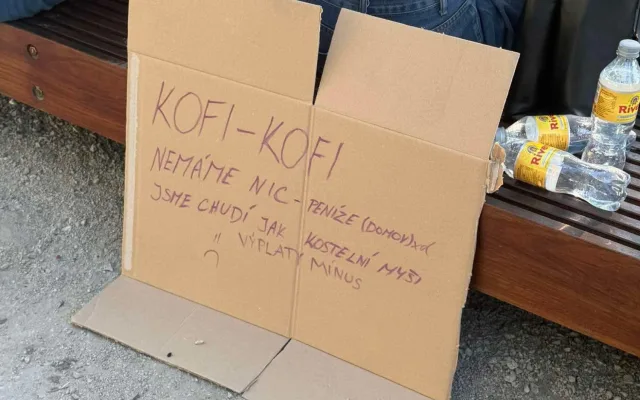 KOFI-KOFI
NEMÁME NIC - PENÍZE (DOMOV)
JSME CHUDÍ JAK KOSTELNÍ MYŠI
VÝPLATY MÍNUS
Riva
Riva
Riva